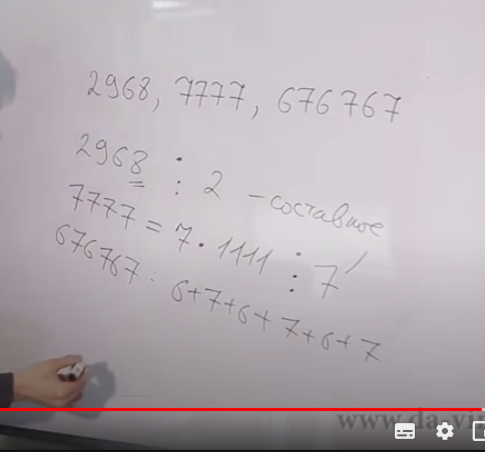 2968, 7777, 676767
2968 ⋮ 2 – составное
7777 = 7 · 1111 ⋮ 7
676767 : 6+7+6+7+6+7